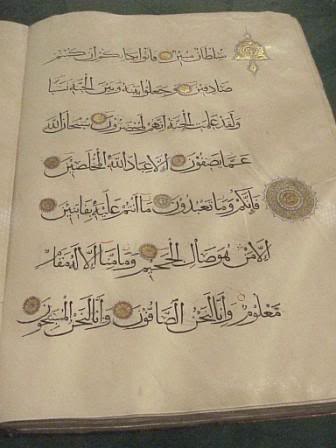 سُلْطَانٌ مُبِينٌ فَأْتُوا بِكِتَابِكُمْ إِنْ كُنْتُمْ
صَادِقِينَ وَجَعَلُوا بَيْنَهُ وَبَيْنَ الْجِنَّةِ نَسَبًا
وَلَقَدْ عَلِمَتِ الْجِنَّةُ إِنَّهُمْ لَمُحْضَرُونَ سُبْحَانَ اللَّهِ
عَمَّا يَصِفُونَ إِلَّا عِبَادَ اللَّهِ الْمُخْلَصِينَ
فَإِنَّكُمْ وَمَا تَعْبُدُونَ مَا أَنْتُمْ عَلَيْهِ بِفَاتِنِينَ
إِلَّا مَنْ هُوَ صَالِ الْجَحِيمِ وَمَا مِنَّا إِلَّا لَهُ مَقَامٌ
مَعْلُومٌ وَإِنَّا لَنَحْنُ الصَّافُّونَ وَإِنَّا لَنَحْنُ الْمُسَبِّحُونَ